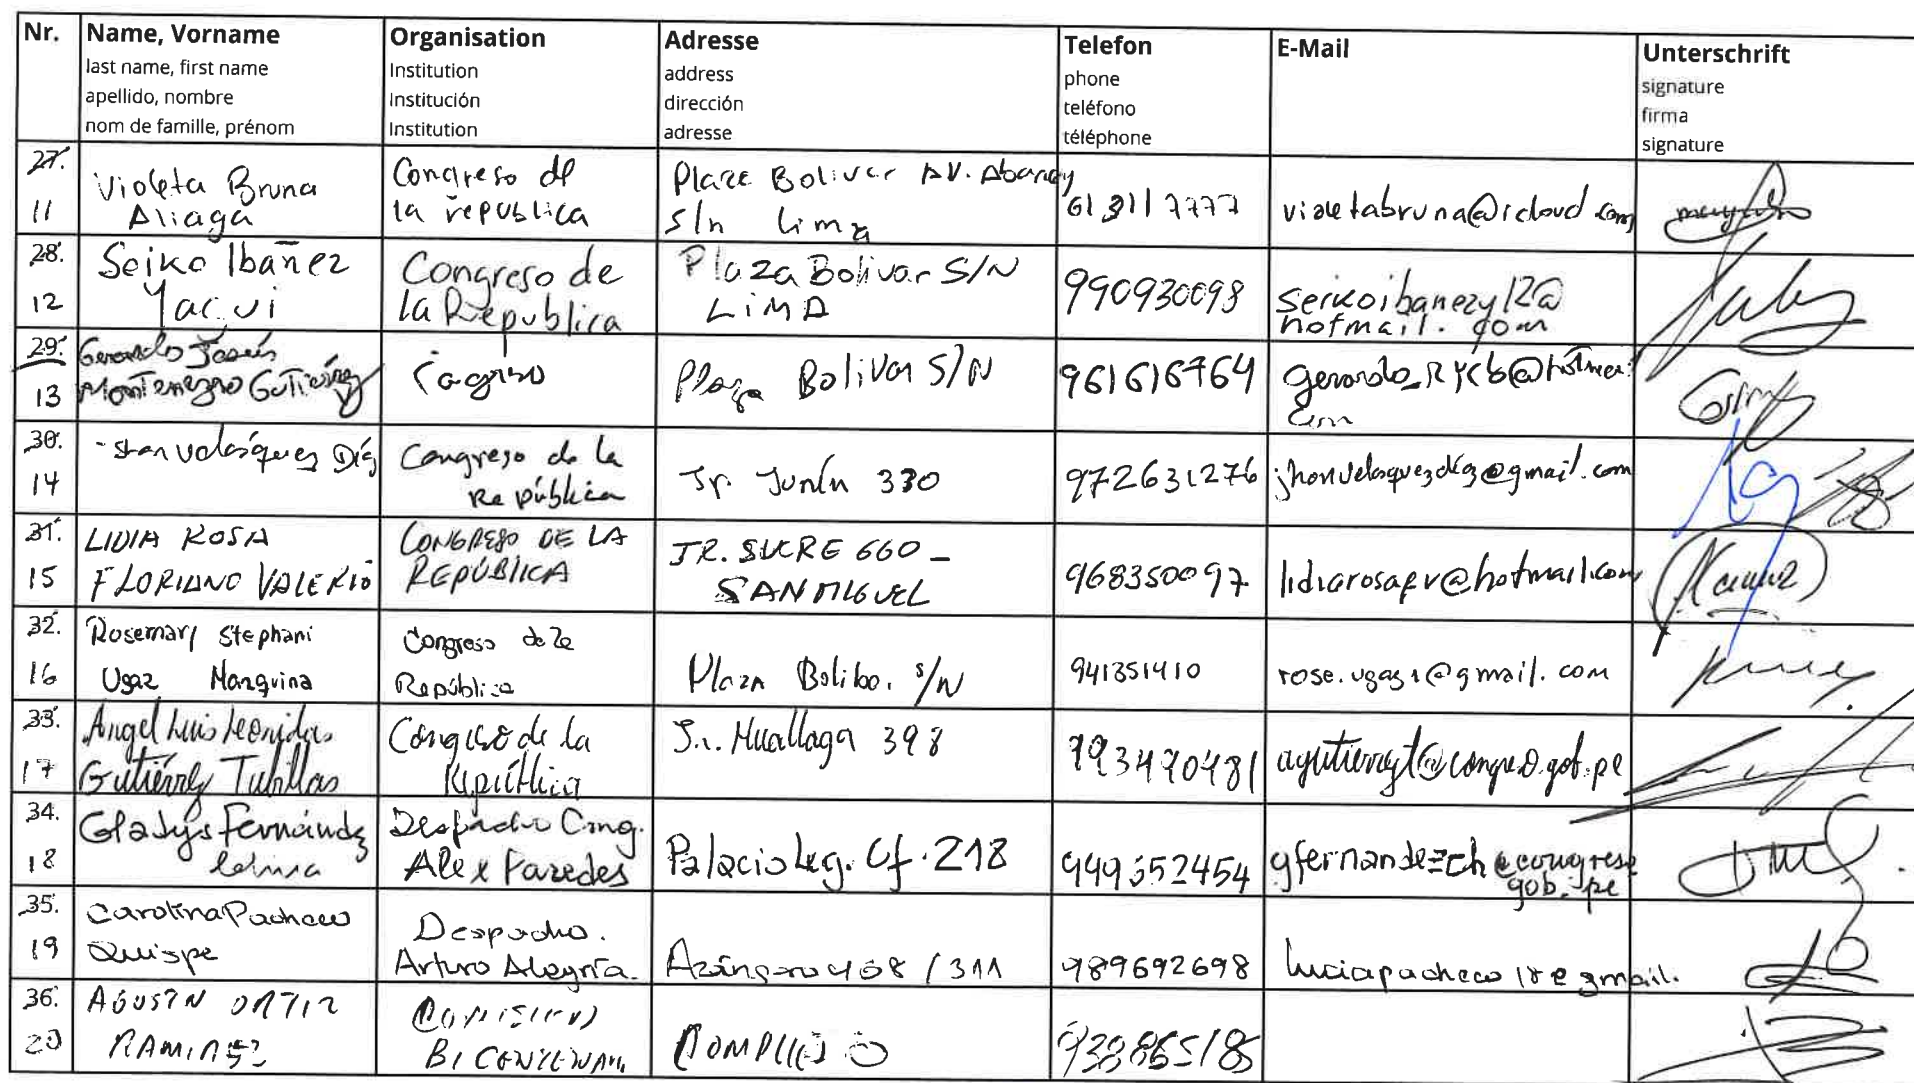 Nr.
Name, Vorname
last name, first name
apellido, nombre
nom de famille, prénom
Organisation
Institution
Institución
Institution
Adresse
address
dirección
adresse
Telefon
phone
teléfono
téléphone
E-Mail
Unterschrift
signature
firma
signature
27.
11
Violeta Bruna
Aliaga
Congreso de
la republica
Plaza Bolivar AV. Abancay
S/n Lima
violetabruna@icloud.com
28.
12
Seiko Ibañez
Yacui
Congreso de
la Republica
Plaza Bolivar S/N
LIMA
990930098
seikoibanezy12@
hotmail.com
29.
13
Gerardo Jesús
Montenegro Gutiérrez
Plaza Bolivar S/N
961616764
30.
14
Velásquez Díaz
Congreso de la
República
Jr. Junín 330
972631276
jhonvelasquezdiaz@gmail.com
31.
15
LIDIA ROSA
FLORIANO VALERIO
CONGRESO DE LA
REPÚBLICA
JR. SUCRE 660 -
SAN MIGUEL
968350097
lidiarosafv@hotmail.com
32.
16
Rosemary Stephani
Ugaz Marquina
Congreso de la
República
Plaza Bolibar s/N
941351410
rose.ugaz1@gmail.com
33.
17
Angel Luis Leonidas
Gutiérrez Tubillas
Congreso de la
República
Jr. Huallaga 398
993470481
agutierrezt@congreso.gob.pe
34.
18
Gladys Fernández
Despacho Cong.
Alex Paredes
Palacio Leg. Of. 218
949552454
gfernandezch@congreso
gob.pe
35.
19
Carolina Pacheco
Quispe
Despacho.
Arturo Alegría.
Azángaro 468 / 311
989692698
luciapacheco18@gmail.
36.
20
AGUSTIN ORTIZ
RAMIREZ
COMISION
BICENTENARIO